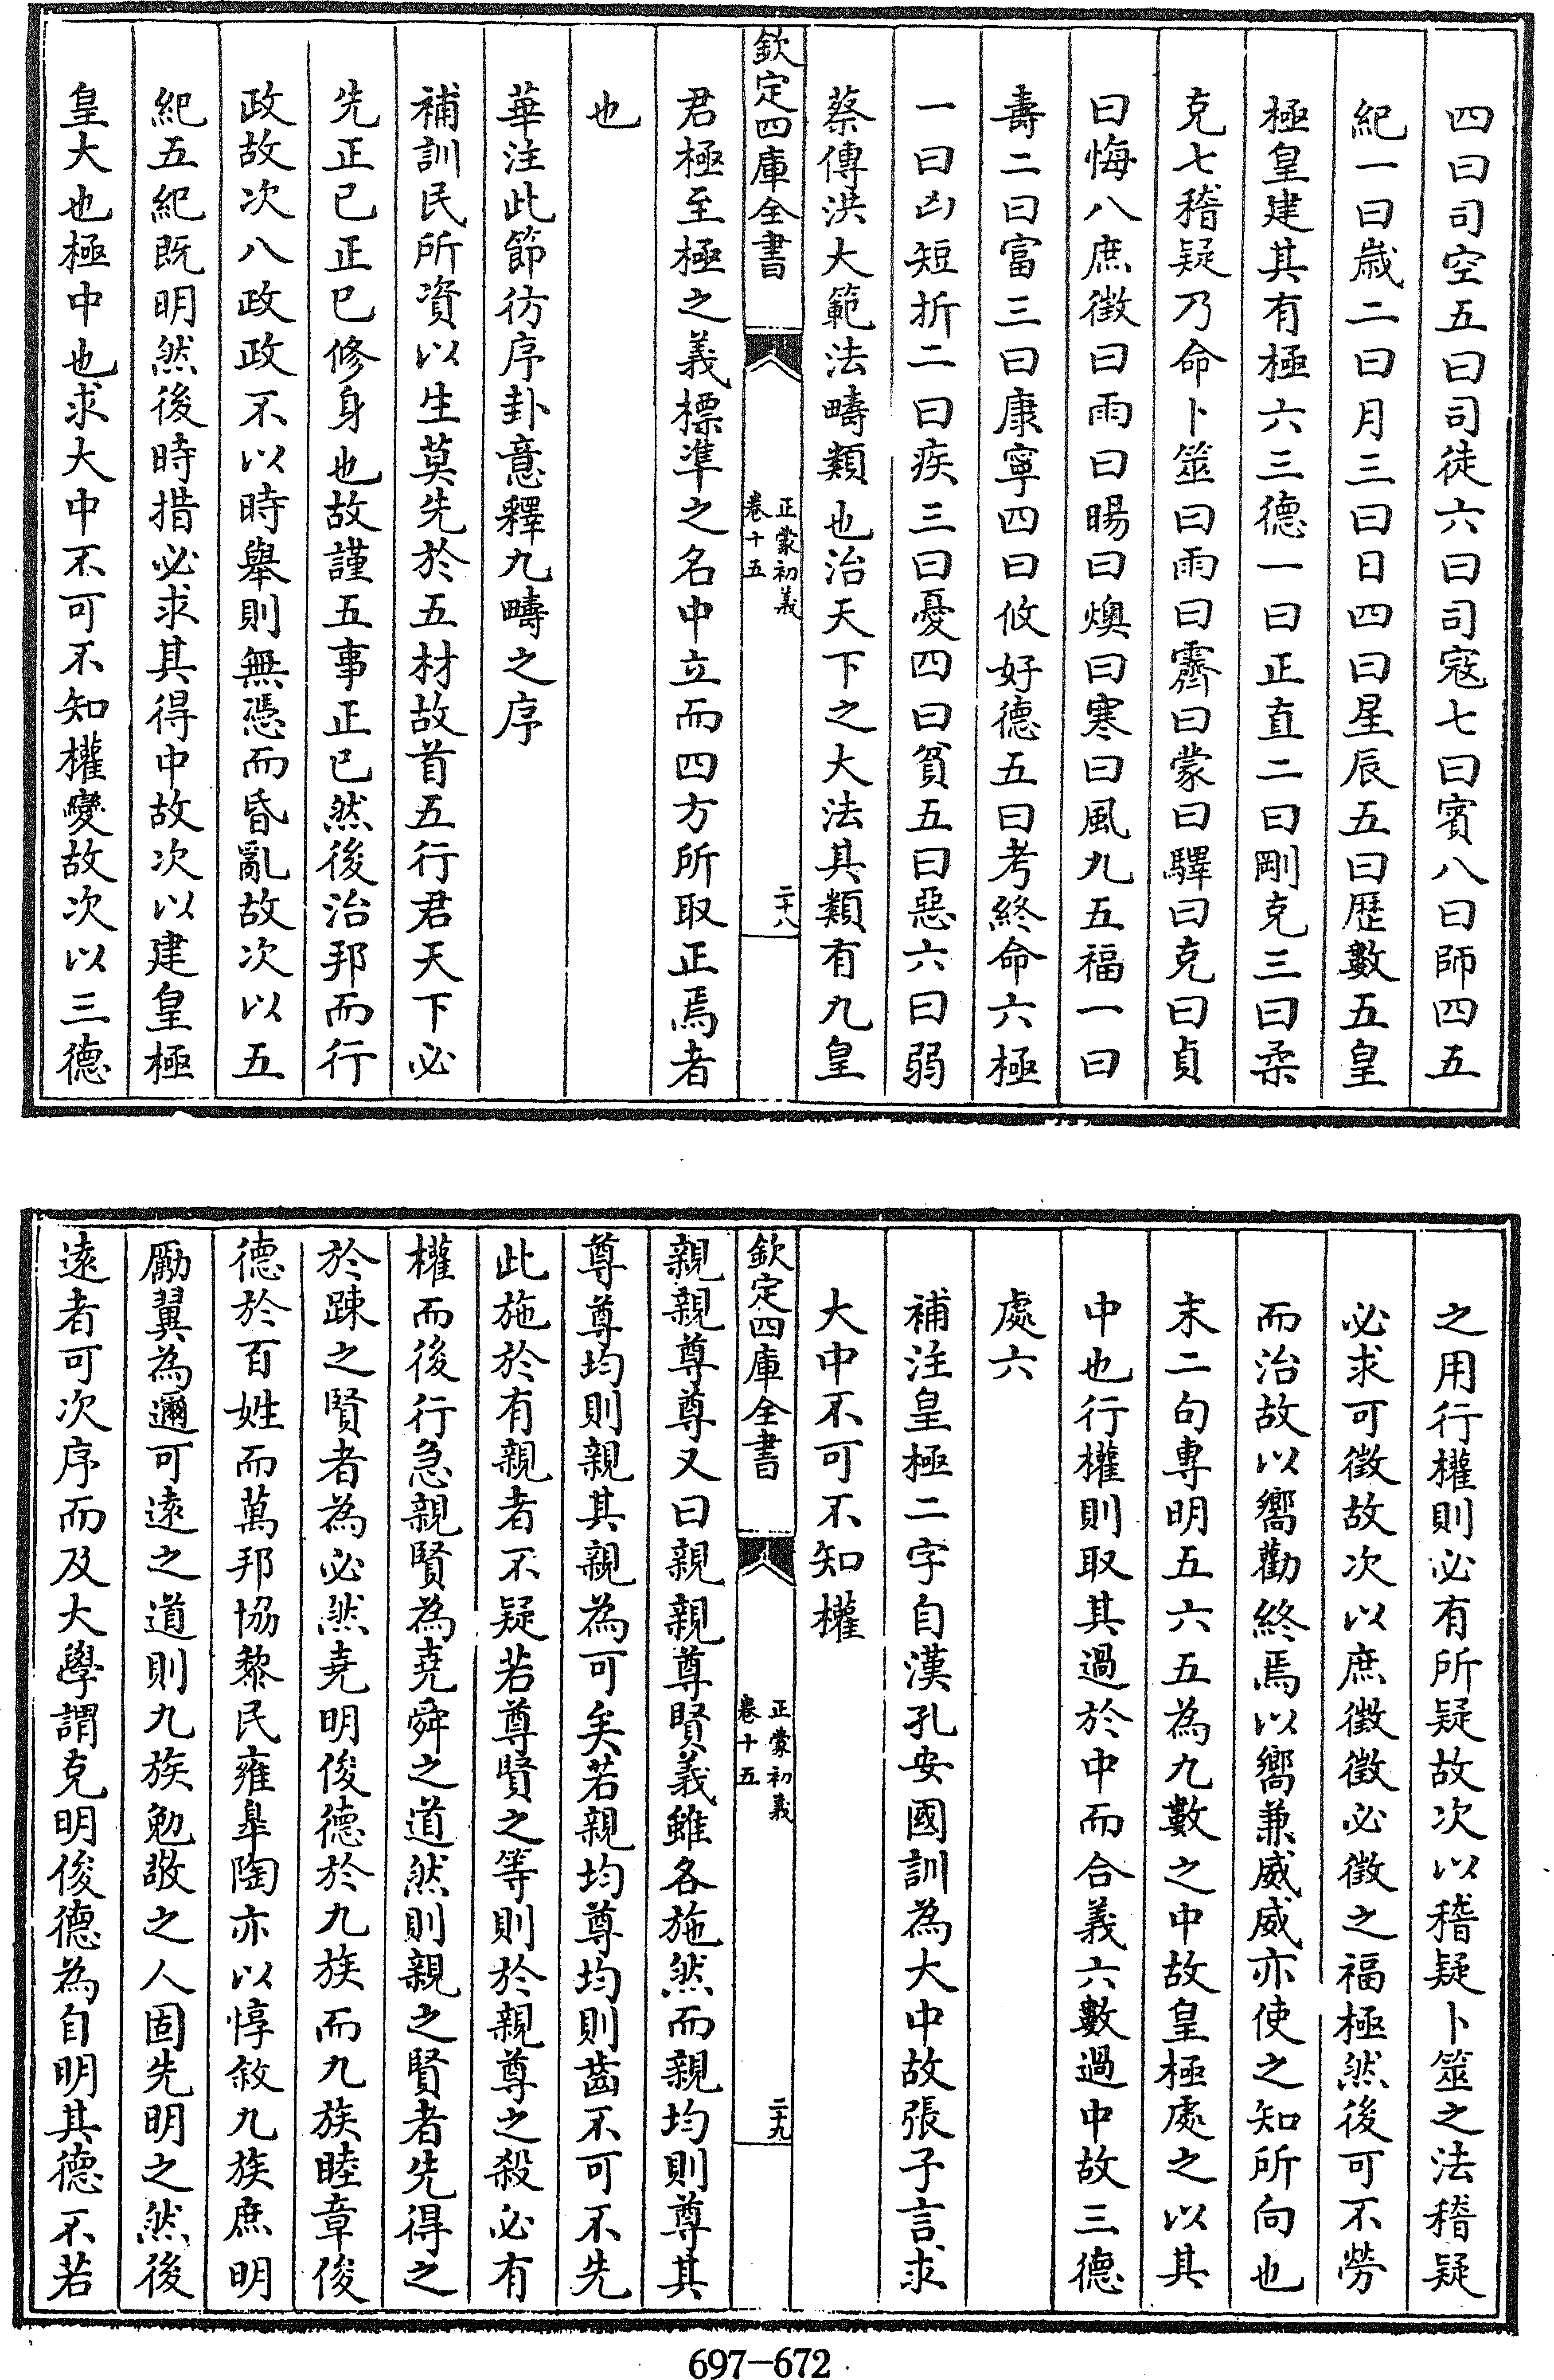 四曰司空五曰司徒六曰司寇七曰賓八曰師四五
紀一曰嵗二曰月三曰日四曰星辰五曰歴數五皇
極皇建其有極六三德一曰正直二曰剛克三曰柔
克七稽疑乃命卜筮曰雨曰霽曰蒙曰驛曰克曰貞
曰悔八庶徵曰雨曰暘曰燠曰寒曰風九五福一曰
壽二曰富三曰康寧四曰攸好德五曰考終命六極
一曰凶短折二曰疾三曰憂四曰貧五曰惡六曰弱
蔡傳洪大範法疇類也治天下之大法其類有九皇
欽定四庫全書
正蒙初義
卷十五
二十八
君極至極之義標準之名中立而四方所取正焉者
也
華注此節彷序卦意釋九疇之序
補訓民所資以生莫先於五材故首五行君天下必
先正已正已修身也故謹五事正已然後治邦而行
政故次八政政不以時舉則無憑而昏亂故次以五
紀五紀既明然後時措必求其得中故次以建皇極
皇大也極中也求大中不可不知權變故次以三德
之用行權則必有所疑故次以稽疑卜筮之法稽疑
必求可徵故次以庶徵徵必徵之福極然後可不勞
而治故以嚮勸終焉以嚮兼威威亦使之知所向也
末二句專明五六五為九數之中故皇極處之以其
中也行權則取其過於中而合義六數過中故三德
處六
補注皇極二字自漢孔安國訓為大中故張子言求
大中不可不知權
欽定四庫全書
正蒙初義
卷十五
二十九
親親尊尊又曰親親尊賢義雖各施然而親均則尊其
尊尊均則親其親為可矣若親均尊均則齒不可不先
此施於有親者不疑若尊賢之等則於親尊之殺必有
權而後行急親賢為堯舜之道然則親之賢者先得之
於踈之賢者為必然堯明俊德於九族而九族睦章俊
德於百姓而萬邦協黎民雍臯陶亦以惇敘九族庶明
勵翼為邇可逺之道則九族勉敬之人固先明之然後
逺者可次序而及大學謂克明俊德為自明其德不若
697-672